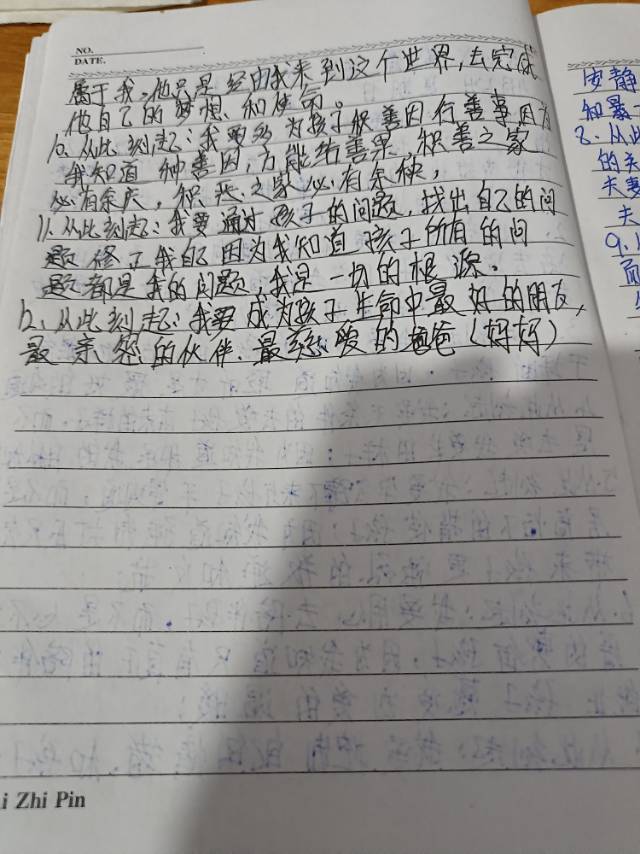 NO.
DATE.
属于我，他只是经由我来到这个世界，去完成
他自己的梦想、和使命。
10、从此刻起：我要多为孩子积善因行善事因为
我知道种善因，方能结善果，积善之家
必有余庆，积恶之家必有余殃，
11、从此刻起：我要通过孩子的问题，找出自己的问
题修正我自己因为我知道孩子所有的问
题都是我的问题，我是一切的根源。
12、从此刻起：我要成为孩子生命中最好的朋友，
最亲密的伙伴、最慈爱的爸爸（妈妈）
安静
和最
8、从此
的关
夫妻
夫
9、
而
i Zhi Pin